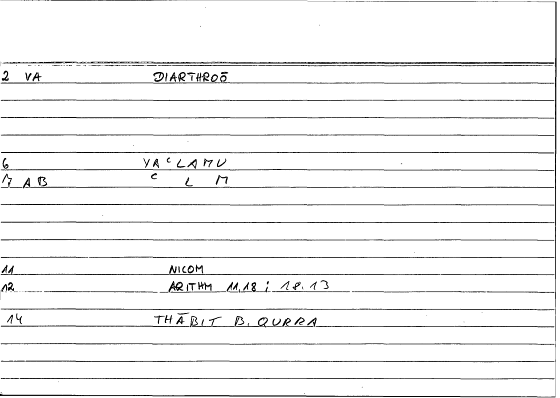 2 VA DIARTHROŌ
6 YAᶜLAMU
7 AB ᶜ L M
11 NICOM
12 ARITHM 11.18 ; 18.13
14 THĀBIT B. QURRA